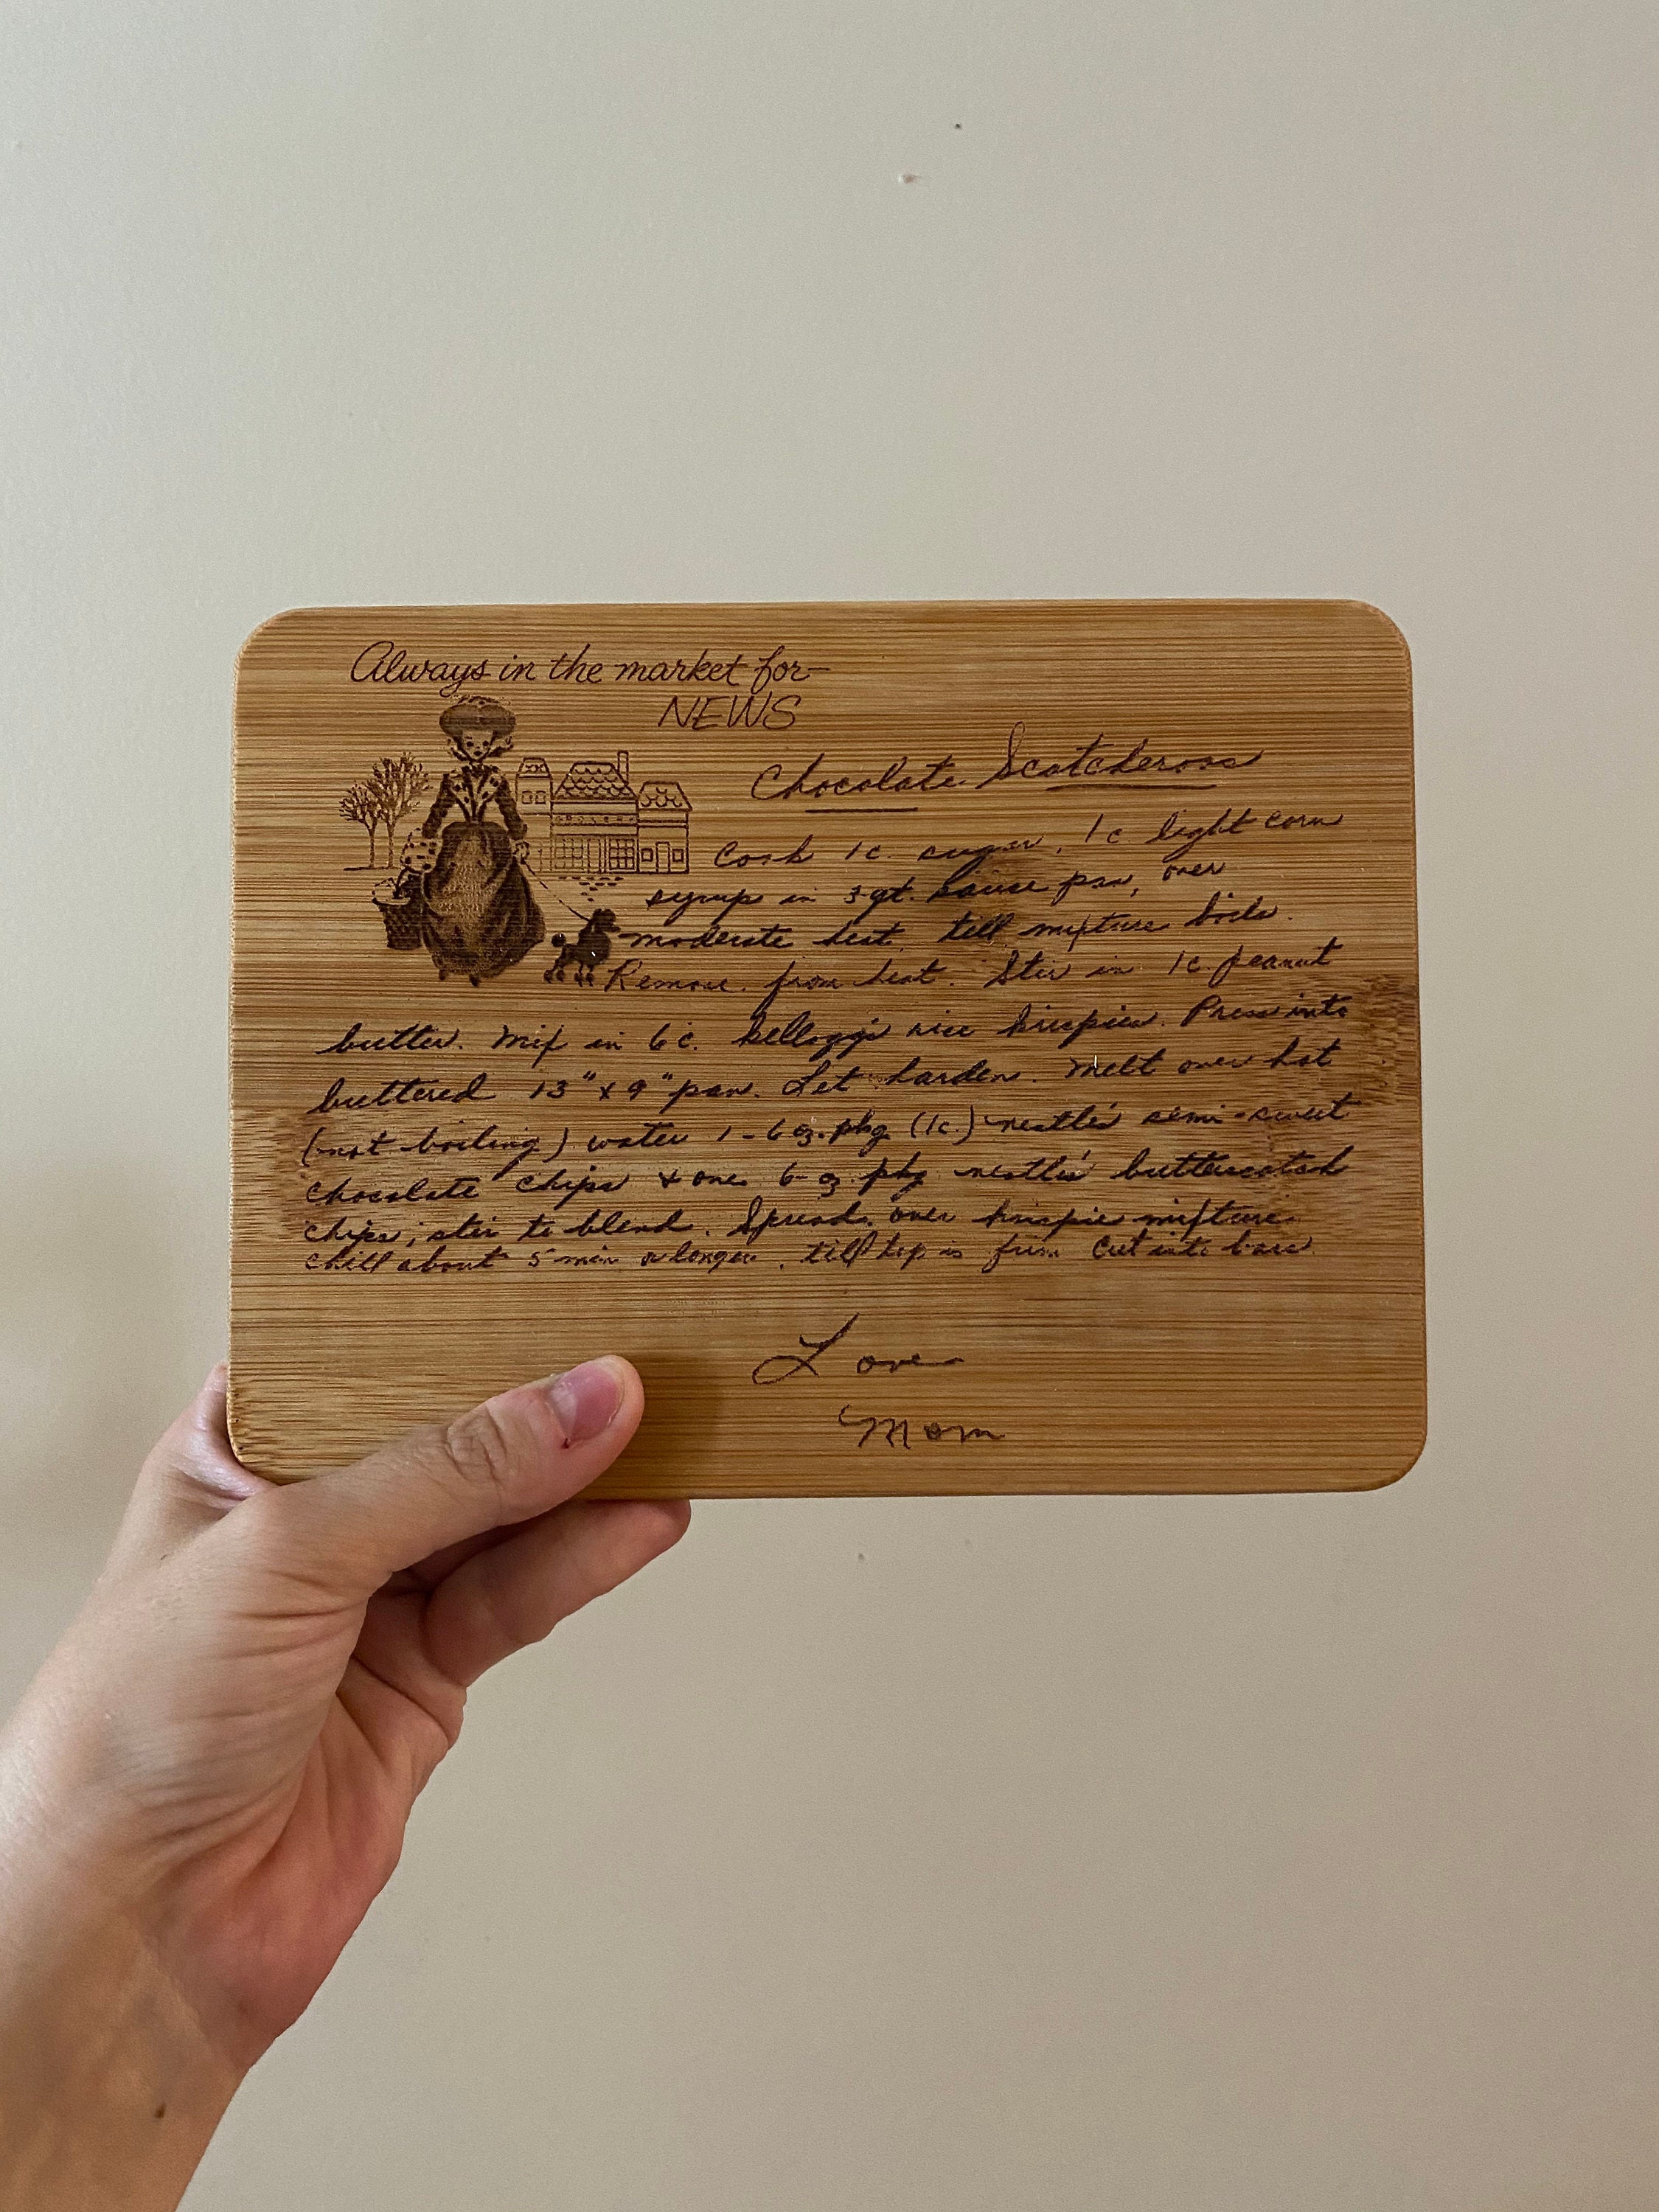 Always in the market for—
NEWS
Chocolate Scotcheroos
Cook 1 c. sugar, 1 c light corn
syrup in 3-qt. sauce pan, over
moderate heat, till mixture boils.
Remove from heat. Stir in 1c peanut
butter. Mix in 6 c. kellogg's rice krispies. Press into
buttered 13" x 9" pan. Let harden. Melt over hot
(not boiling) water 1-6 oz. pkg (1c.) nestle's semi-sweet
chocolate chips & one 6-oz pkg nestle's butterscotch
chips; stir to blend. Spread over krispie mixture.
chill about 5 min or longer, till top is firm Cut into bars
Love
Mom